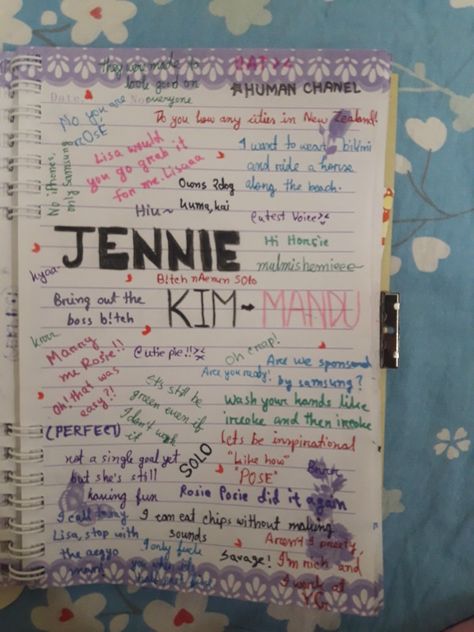 they were made to
look good on
everyone
#HUMAN CHANEL
Date
No
No you are
ROSÉ
Do you know any cities in New Zealand!
No iPhones,
only Samsung
Lisa would
you go grab it
for me Lisaaa
I want to wear bikini
and ride a horse
along the beach.
Owns 2dog
kuma, kai
Hiii~
Cutest Voice
JENNIE
Hi Horsie
Kyaa~
B!tch nAemun SOLO
Bring out the
boss b!tch
KIM-MANDU
krrr
Marry
me Rosie!!
Cutie pie!!
Oh crap!
Are you ready!
Are we sponsored
by samsung?
Oh! that was
easy?!
Let's still be
green even if
I don't work
it
Wash your hands like
invoke and then invoke
(PERFECT)
lets be inspirational
SOLO
"Like how"
"POSE"
not a single goal yet
but she's still
having fun
Rosie Posie did it again
I call
I can eat chips without making
sounds
Lisa, stop with
the aegyo
man!
I only
Savage!
Aren't I pretty,
I'm rich and
I work at
YG